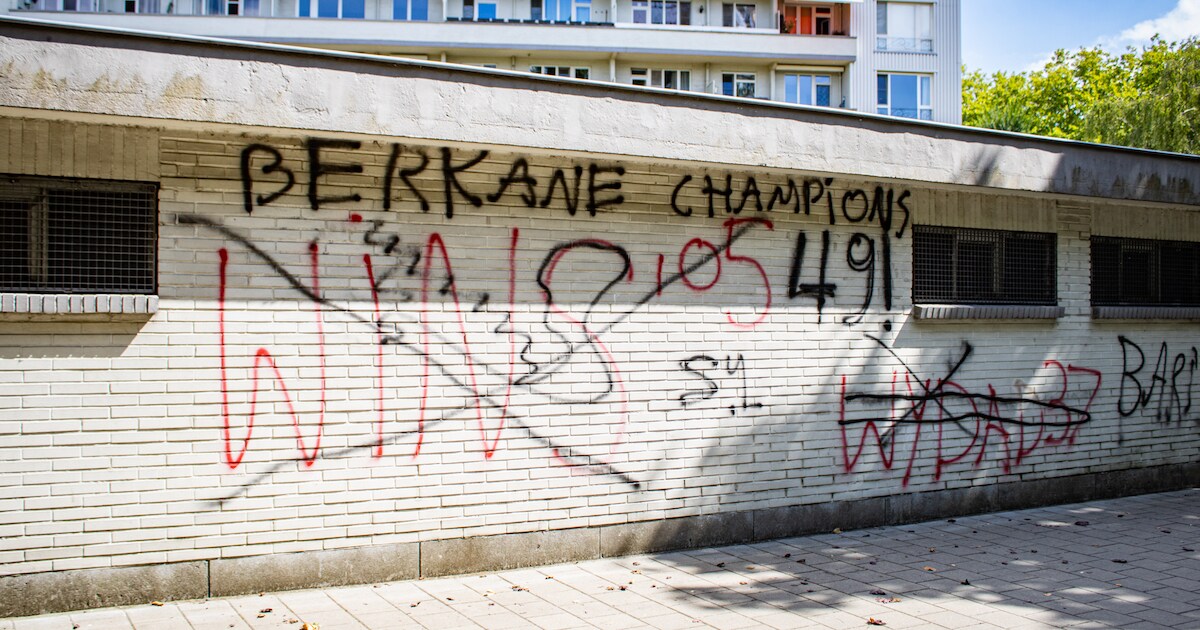 BERKANE CHAMPIONS
WINS '05 49!
S1
WYDAD37
BAR